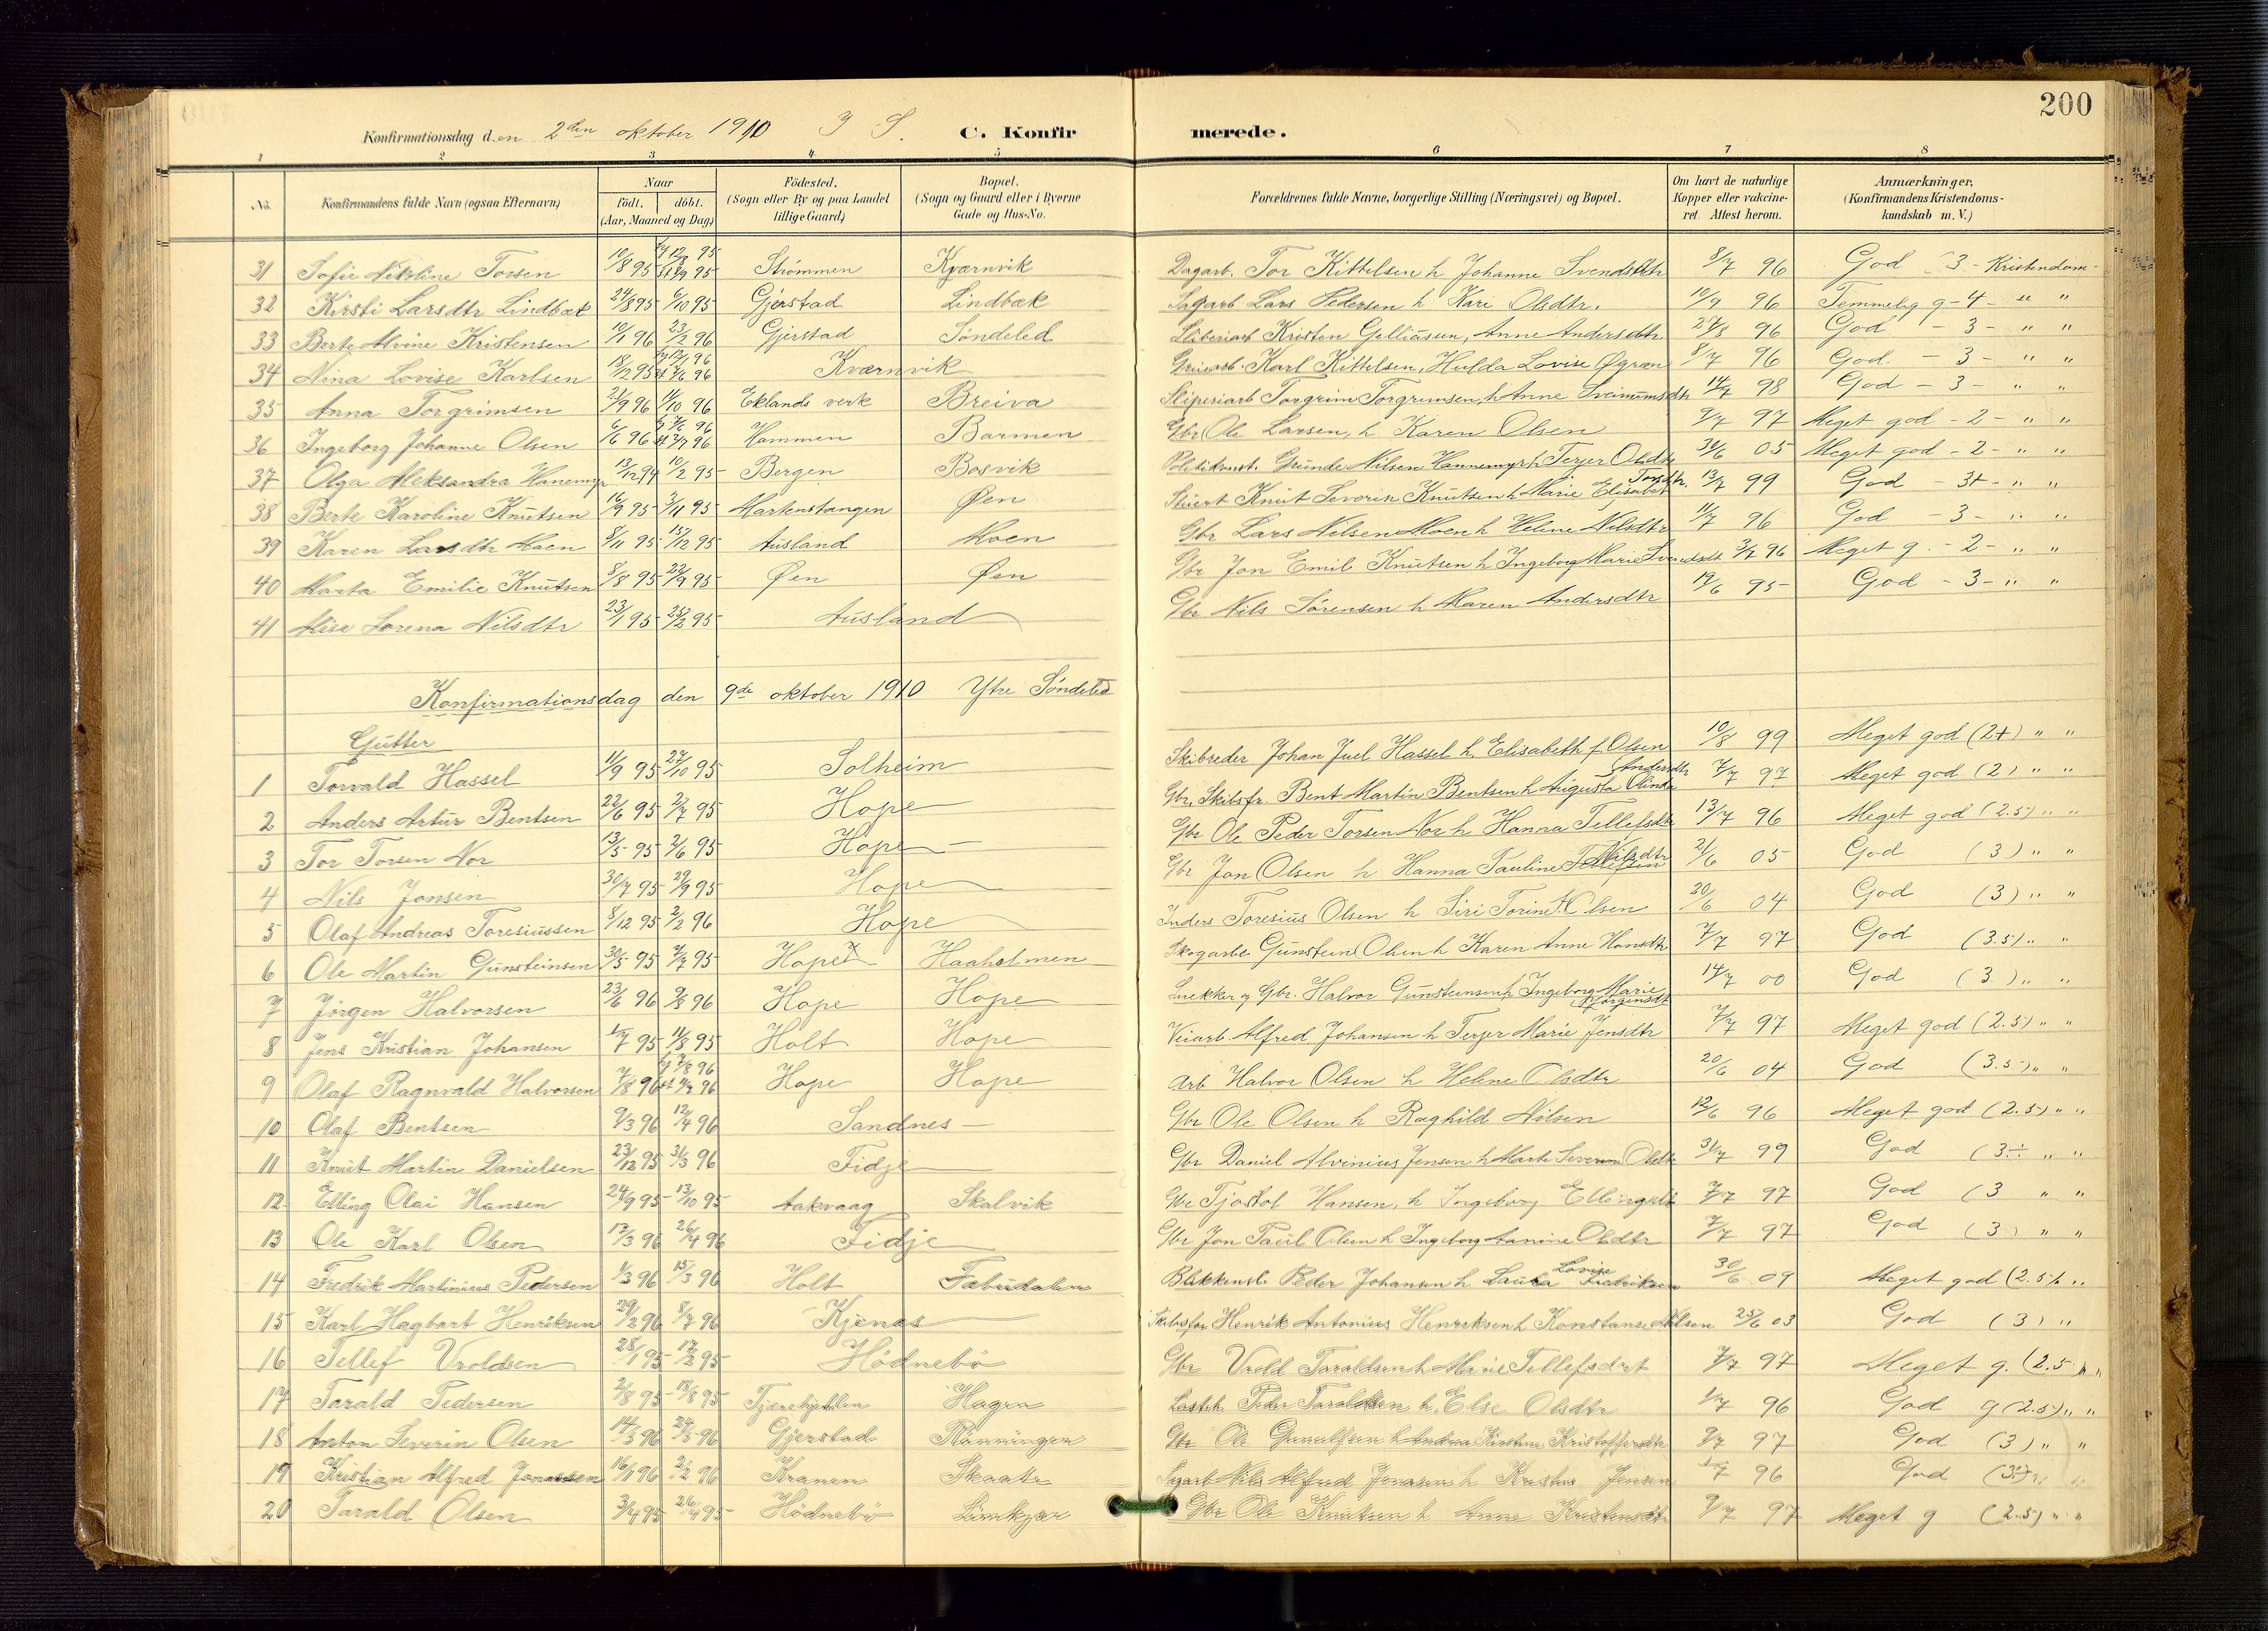 200
Konfirmationsdag den 2den oktober 1910 I S. C. Konfirmerede.
1 2 3 4 5 6 7 8
No. Konfirmandens fulde Navn (ogsaa Efternavn) Naar födt. döbt. (Aar, Maaned og Dag) Födested. (Sogn eller By og paa Landet tillige Gaard) Bopæl. (Sogn og Gaard eller i Byerne Gade og Hus-No. Forældrenes fulde Navne, borgerlige Stilling (Næringsvei) og Bopæl. Om havt de naturlige Kopper eller vakcineret. Attest herom. Anmærkninger. (Konfirmandens Kristendomskundskab m. V.)
31 Sofie Nikoline Torsen 10/8 95 12/8 95 Strömmen Kjærnvik Dagarb. Tor Kittelsen h Johanne Svendsdtr 8/7 96 God 3 - Kristendom -
32 Kirsti Larsdtr Lindbæk 24/8 95 6/10 95 Gjerstad Lindbæk Sagarb Lars Pedersen h Kari Olsdtr. 10/9 96 Temmelig g - 4 - " "
33 Berte Alvine Kristensen 10/1 96 23/2 96 Gjerstad Söndeled Sliberiarb Kristen Gulliksen, Anne Andersdtr 27/8 96 God - 3 - " "
34 Nina Lovise Karlsen 18/12 95 96 Kværnvik Karl Kittelsen, Hulda Lovise Øgren 8/7 96 God - 3 - " "
35 Anna Torgrimsen 21/9 96 11/10 96 Eklands verk Breiva Sliperiarb Torgrim Torgrimsen, h Anne 14/7 98 God - 3 - " "
36 Ingeborg Johanne Olsen 6/6 96 96 Hammen Barmen Gbr Ole Larsen, h Karen Olsen 9/7 97 Meget god - 2 - " "
37 Olga Aleksandra Hanemyr 13/12 94 10/2 95 Bergen Bosvik Politikonst. Gunde Nilsen Hannemyr h Terjer Olsdtr 30/6 05 Meget god - 2 - " "
38 Berte Karoline Knutsen 16/9 95 3/11 95 Martenstangen Øen Stuert Knut Severin Knutsen h Marie Elisabet Torsdtr. 13/7 99 God - 3+ - " "
39 Karen Larsdtr Moen 8/11 95 15/12 95 Ausland Moen Gbr Lars Nilsen Moen h Helene Nilsdtr 11/7 96 God - 3 - " "
40 Marta Emilie Knutsen 8/8 95 22/9 95 Øen Øen Gbr Jon Emil Knutsen h Ingeborg Marie Svendsdt 3/7 96 Meget g. - 2 - " "
41 Alise Lorena Nilsdtr 23/1 95 25/2 95 Ausland Gbr Nils Sörensen h Maren Andersdtr 17/6 95 God - 3 - " "
Konfirmationsdag den 9de oktober 1910 Ytre Söndeled
Gutter
1 Torvald Hassel 11/9 95 27/10 95 Solheim Skibreder Johan Juel Hassel h. Elisabeth f. Olsen 10/8 99 Meget god (2+) " "
2 Anders Artur Bentsen 22/6 95 2/7 95 Hope Gbr, Skibsfr. Bent Martin Bentsen h Augusta Olinda Andersdtr 7/7 97 Meget god (2) " "
3 Tor Torsen Nor 13/5 95 2/6 95 Hope Gbr Ole Peder Torsen Nor h Hanna Tellefsdtr 13/7 96 Meget god (2.5) " "
4 Nils Jonsen 30/7 95 29/9 95 Hope Gbr Jon Olsen h Hanna Pauline Tellefsen Nilsdtr 21/6 05 God (3) " "
5 Olaf Andreas Toresiussen 8/12 95 2/2 96 Hope Inders Toresius Olsen h Siri Torine Olsen 20/6 04 God (3) " "
6 Ole Martin Gunsteinsen 30/5 95 7/7 95 Hope Haaholmen Skogarb Gunstein Olsen h Karen Anne Hansdtr 7/7 97 God (3.5) " "
7 Jörgen Halvorsen 23/6 96 9/8 96 Hope Hope Snekker og Gbr. Halvor Gunsteinsen h Ingeborg Marie Jörgensdt 14/7 00 God (3.) " "
8 Jens Kristian Johansen 1/7 95 11/8 95 Holt Hope Veiarb Alfred Johansen h Terjer Marie Jensdtr 7/7 97 Meget god (2.5) " "
9 Olaf Ragnvald Halvorsen 7/8 96 7/8 96 Hope Hope Arb Halvor Olsen h Helene Olsdtr 20/6 04 God (3.5) " "
10 Olaf Bentsen 9/3 96 12/4 96 Sandnes Gbr Ole Olsen h Raghild Nilsen 12/6 96 Meget god (2.5) " "
11 Knut Martin Danielsen 23/12 95 3/3 96 Fidje Gbr Daniel Alvinius Jensen h Marte Severine Olsdtr 31/7 99 God (3÷ " "
12 Elling Olai Hansen 24/9 95 13/10 95 Aakvaag Skalvik Gbr Tjostol Hansen, h Ingeborg Ellingsdt 7/7 97 God (3 " "
13 Ole Karl Olsen 17/3 96 26/4 96 Fidje Gbr Jon Paul Olsen h Ingeborg Olsdtr 7/7 97 God (3) " "
14 Fredrik Martinius Pedersen 1/3 96 15/3 96 Holt Peder Johansen h Laura Lovise Fredriksen 30/6 09 Meget god (2.5) " "
15 Karl Hagbart Henriksen 29/2 96 8/7 96 Kjenas Skibsfør Henrik Antonius Henriksen h Konstanse Nilsen 25/6 03 God (3) "
16 Tellef Vroldsen 28/1 95 17/2 95 Hödnebö Gbr Vrold Taraldsen h Marie Tellefsdt 7/7 97 Meget g. (2.5 " "
17 Tarald Pedersen 2/8 95 18/8 95 Hagen Peder Taraldsen h. Else Olsdtr 1/7 96 God g (2.5) " "
18 Anton Severin Olsen 14/3 96 96 Gjerstad Rönningen Gbr Ole Gunulfsen h Andrea Kirstine Kristoffersdtr 9/7 97 God (3) " "
19 Kristian Alfred Jonassen 16/1 96 2/2 96 Kranen Skaate Sagarb Nils Alfred Jonasen h Kristine Jensen 96 God
20 Tarald Olsen 3/4 95 26/4 95 Hödnebö Lönkjær Gbr Ole Knutsen h Anne Kristensdtr 9/7 97 Meget g (2.5) " "